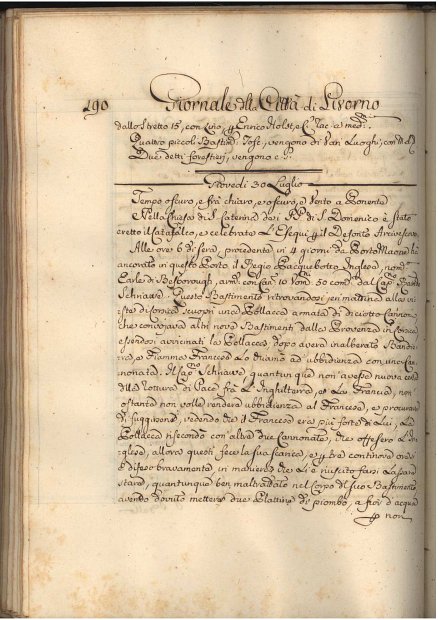 290 Giornale della Città di Livorno
dallo Stretto 15, con Lino, p Enrico Holst, e C. Jac e med:.
Quattro piccoli Bastim: Tosc, vengono di Vari Luoghi, con M. d.
Due detti forestieri, vengono c. S.
Giovedì 30 Luglio
Tempo oscuro, e frà chiaro, e oscuro, e Vento a Ponente
Nella Chiesa di S. Caterina de i PP. di S. Domenico è stato
eretto il Catafalco, e celebrate l'Esequi p il Defonto Arcivescovo.
Alle ore 6 di sera, procedente in 4 giorni da Porto Maone hà
ancorato in questo Porto il Regio Pacquebotto Inglese, nom:
Earle di Besborough, arm: con Can: 10 Uom: 50 com: dal Cap:
Schnawe. Questo Bastimento ritrovandosi jeri mattina alla vi=
ste di Corsica scuoprì una Pollacca armata di diciotto Cannoni,
che convojava altri nove Bastimenti dalla Provenza in Corsica
essendosi avvicinati la Pollacca dopo avere inalberato Bandie=
ra, e Fiamma Francese Lo chiamò ad ubbidienza con una Can=
nonata. Il Cap: Schnawe quantunque non avesse nuova certa
della Rottura di Pace frà L'Inghilterra, e La Francia, non
ostante non volle rendere ubbidienza al Francese, e procurava
di fuggirsene, vedendo che il Francese era più forte di Lui, La
Pollacca ti secondo con altre due Cannonate, che offesero L'In=
glese, allora questi fece la sua scarica, e p tre continove ore si
è difeso bravamente, in maniera che Li è riuscito farsi Lasciare
stare, quantunque ben maltrattato nel Corpo di suo Bastimento
avendo dovuto mettere due Piastre di piombo, a fior d'acqua
p non